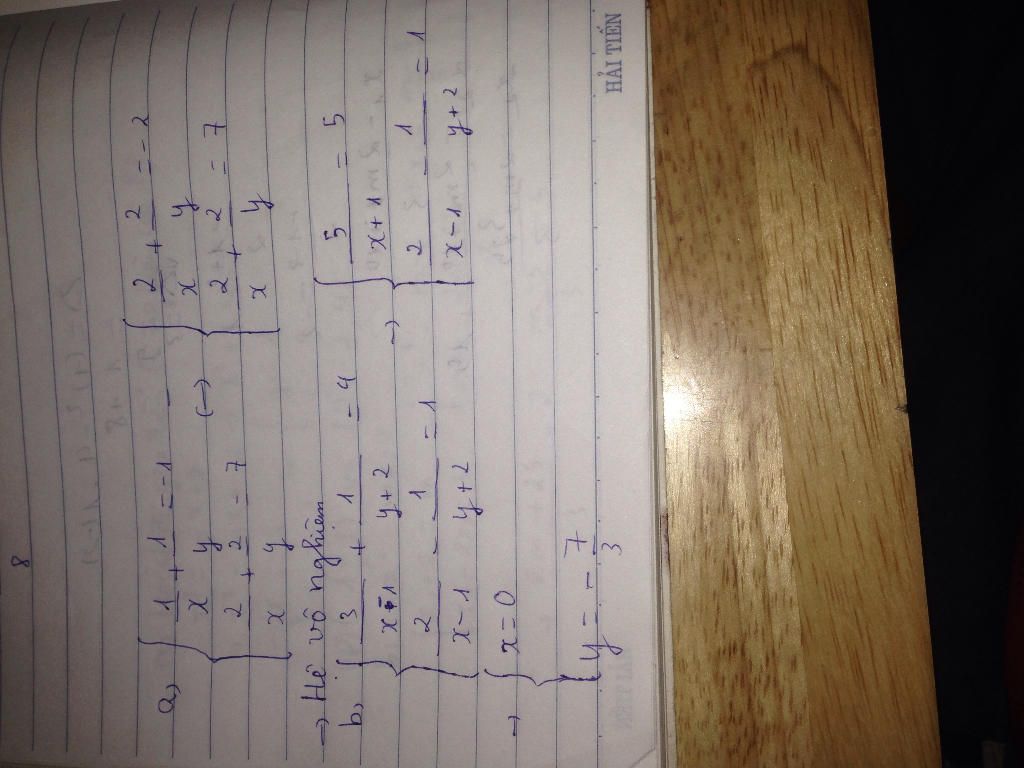 8
a, { 1/x + 1/y = -1 (->) { 2/x + 2/y = -2
2/x + 2/y = 7 2/x + 2/y = 7
→ Hệ vô nghiệm
b, { 3/x+1 + 1/y+2 = 4 → { 5/x+1 = 5
2/x-1 - 1/y+2 = 1 2/x-1 - 1/y+2 = 1
→ { x = 0
y = - 7/3
HẢI TIẾN